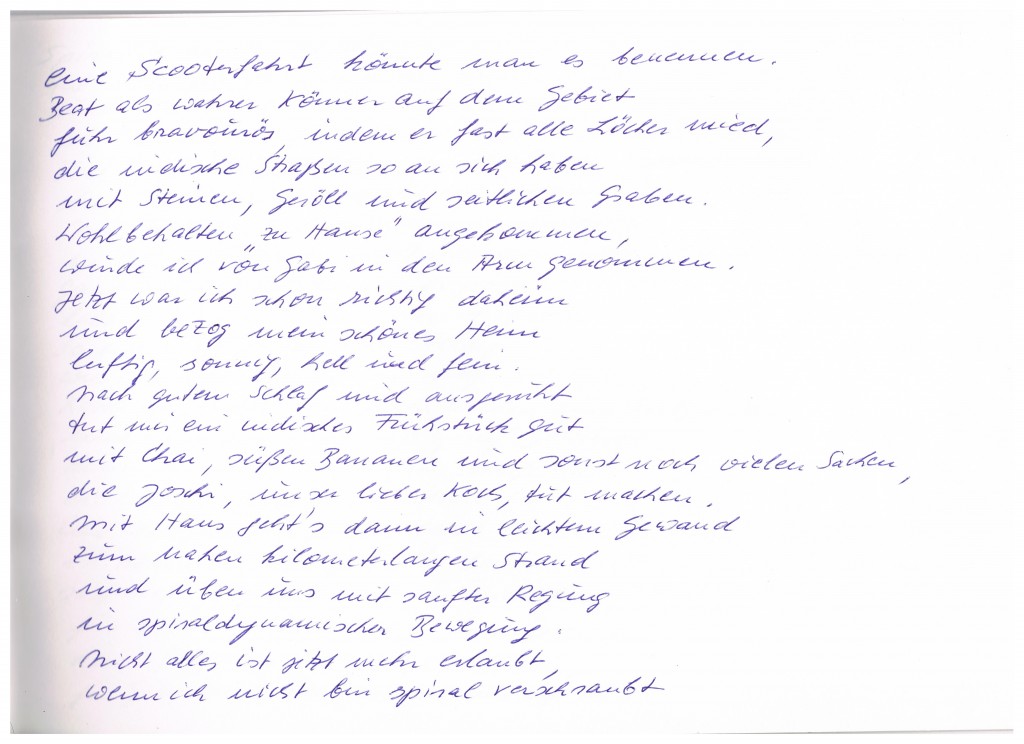 eine Scooterfahrt könnte man es benennen.
Beat als wahrer Könner auf dem Gebiet
fuhr bravourös, indem er fast alle Löcher mied,
die indische Straßen so an sich haben
mit Steinen, Geröll und seitlichen Graben.
Wohlbehalten "zu Hause" angekommen,
wurde ich von Gabi in den Arm genommen.
Jetzt war ich schon richtig daheim
und bezog mein schönes Heim
luftig, sonnig, hell und fein.
Nach gutem Schlaf und ausgeruht
tut mir ein indisches Frühstück gut
mit Chai, süßen Bananen und sonst noch vielen Sachen,
die Joschi, unser lieber Koch, tut machen.
Mit Hans geht's dann in leichtem Gewand
zum nahen kilometerlangen Strand
und üben uns mit sanfter Regung
in spiraldynamischer Bewegung.
Nicht alles ist jetzt mehr erlaubt,
wenn ich nicht bin spiral verschraubt